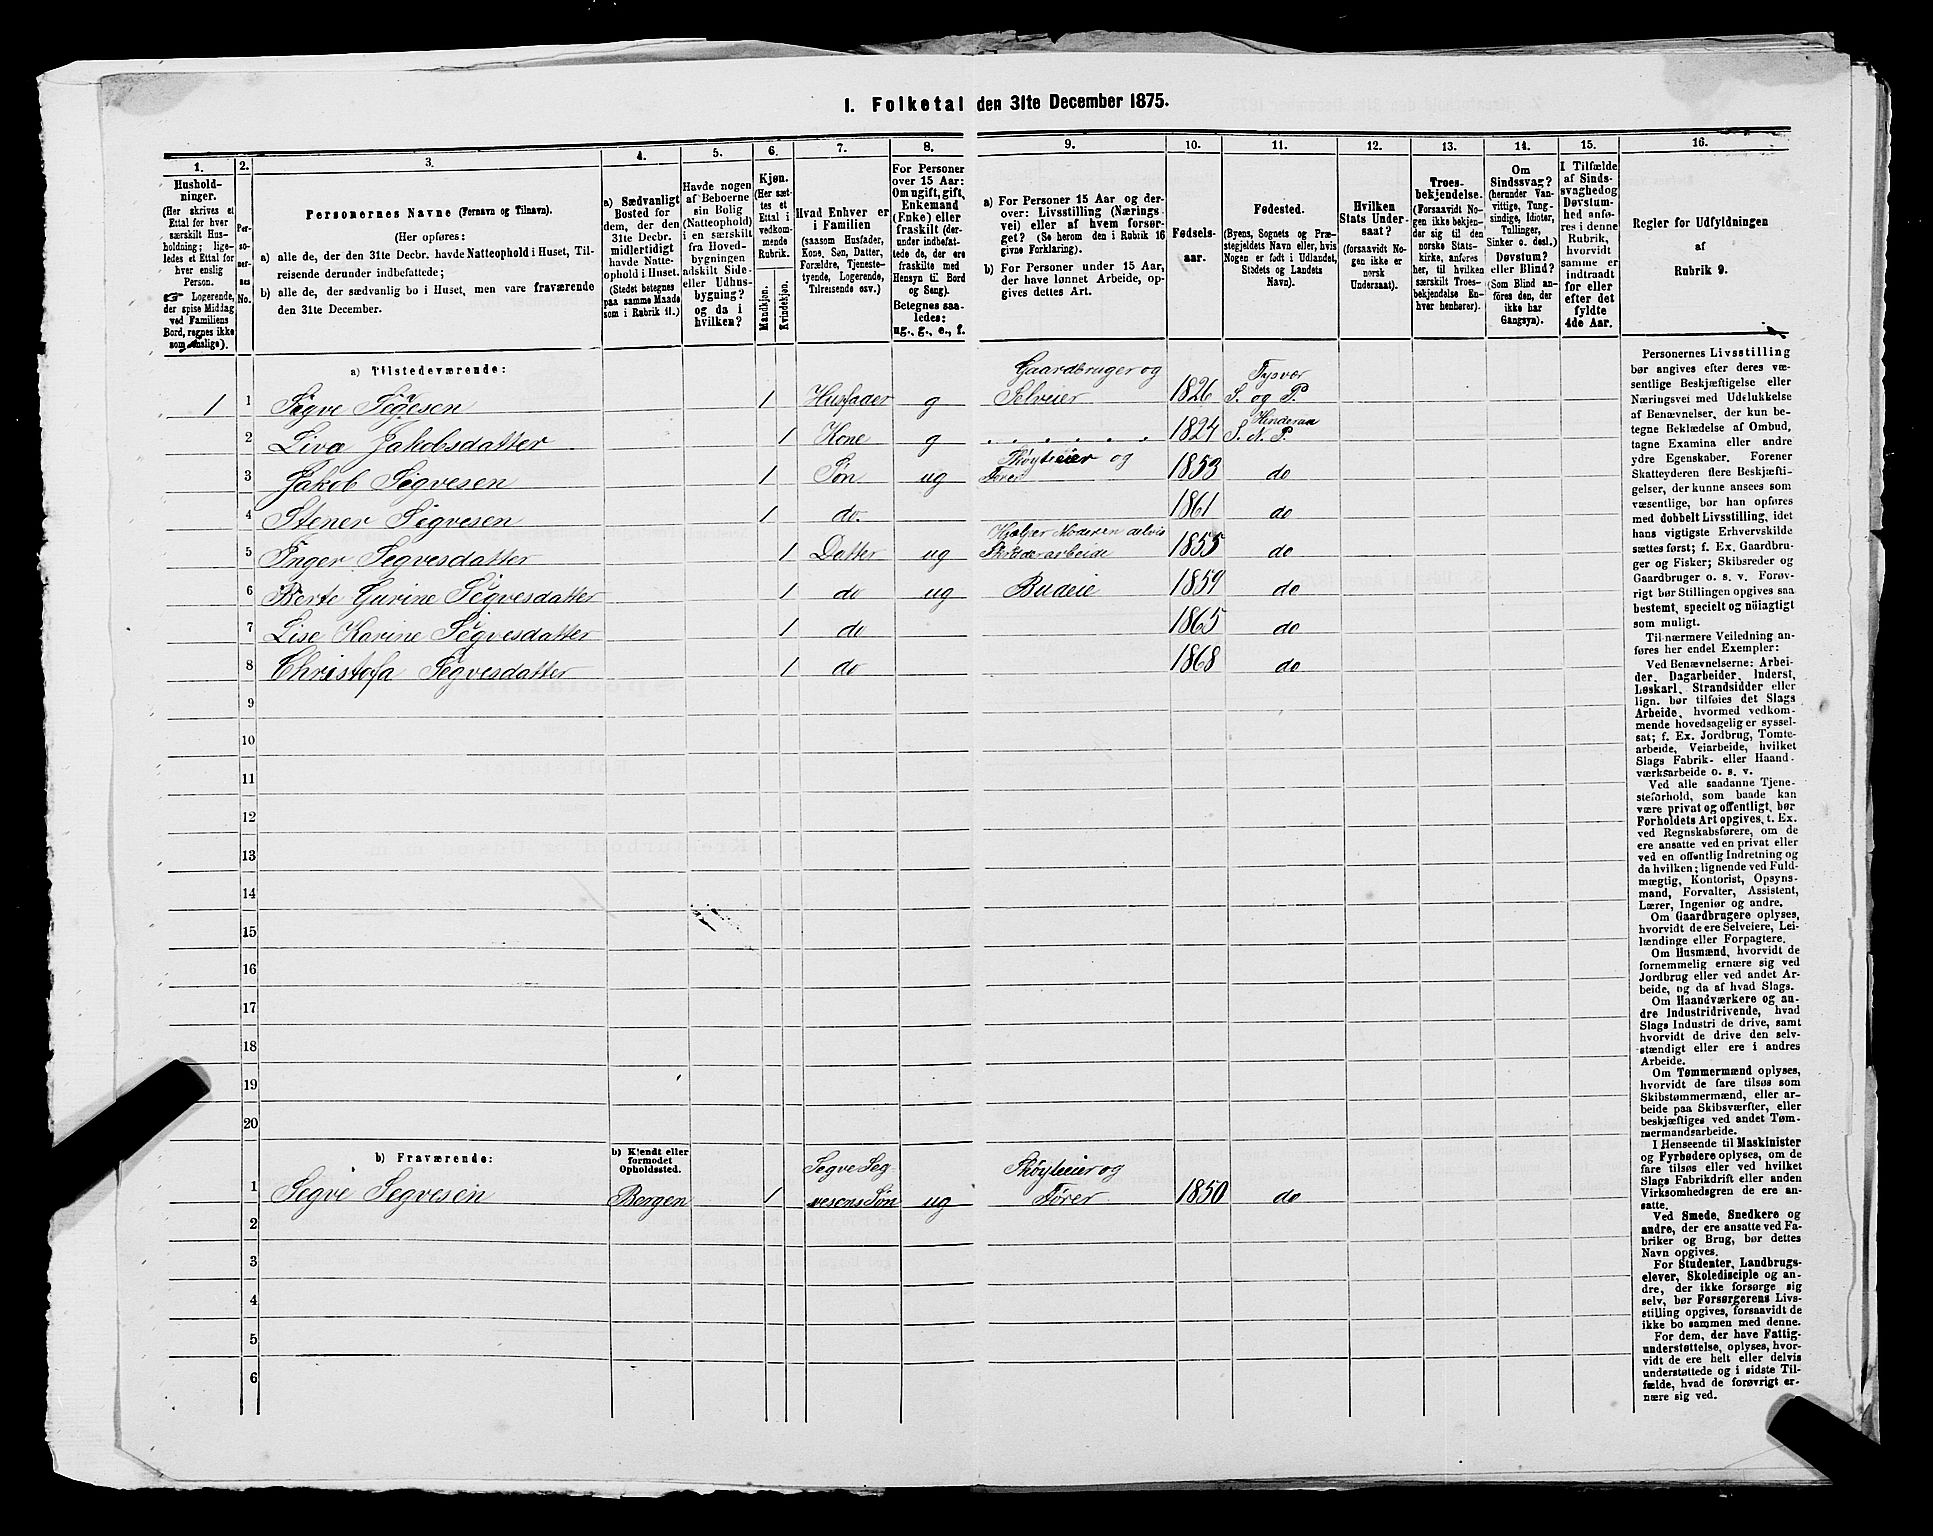 I. Folketal den 31te December 1875.
1. 2. 3. 4. 5. 6. 7. 8. 9. 10. 11. 12. 13. 14. 15. 16.
Hushold-
ninger.
(Her skrives et
Ettal for hver
særskilt Hus-
holdning; lige-
ledes et Ettal for
hver enslig
Person.
☞ Logerende,
der spise Middag
ved Familiens
Bord, regnes ikke
som enslige).
Per-
so-
ner-
nes
No.
Personernes Navne (Fornavn og Tilnavn).
(Her opføres:
a) alle de, der den 31te Decbr. havde Natteophold i Huset, Til-
reisende derunder indbefattede;
b) alle de, der sædvanlig bo i Huset, men vare fraværende
den 31te December.
a) Sædvanligt
Bosted for
dem, der den
31te Decbr.
midlertidigt
havde Natte-
ophold i Huset.
(Stedet betegnes
paa samme Maade
som i Rubrik 11.)
Havde nogen
af Beboerne
sin Bolig
(Natteophold)
i en særskilt
fra Hoved-
bygningen
adskilt Side-
eller Udhus-
bygning?
og da i
hvilken?
Kjøn.
(Her sæt-
tes et
Ettal i
vedkom-
mende
Rubrik.
Mandkjøn.
Kvindekjøn.
Hvad Enhver er
i Familien
(saasom Husfader,
Kone, Søn, Datter,
Forældre, Tjeneste-
tyende, Logerende,
Tilreisende osv.)
For Personer
over 15 Aar:
Om ugift, gift,
Enkemand
(Enke) eller
fraskilt (der-
under indbefat-
tede de, der ere
fraskilte med
Hensyn til Bord
og Seng).
Betegnes saa-
ledes:
ug., g., e., f.
a) For Personer 15 Aar og der-
over: Livsstilling (Nærings-
vei) eller af hvem forsør-
get? (Se herom den i Rubrik 16
givne Forklaring).
b) For Personer under 15 Aar,
der have lønnet Arbeide, op-
gives dettes Art.
Fødsels-
aar.
Fødested.
(Byens, Sognets og Præ-
stegjeldets Navn eller, hvis
Nogen er født i Udlandet,
Stedets og Landets
Navn).
Hvilken
Stats Under-
saat?
(forsaavidt No-
gen ikke er
norsk
Undersaat).
Troes-
bekjendelse.
(Forsaavidt No-
gen ikke bekjen-
der sig til den
norske Stats-
kirke, anføres
her, til hvilken
særskilt Troes-
bekjendelse En-
hver henhører).
Om
Sindssvag?
(herunder Van-
vittige, Tung-
sindige, Idioter,
Tullinger,
Sinker o. desl.)
Døvstum?
eller Blind?
(Som Blind an-
føres den, der
ikke har
Gangsyn).
I Tilfælde
af Sinds-
svaghed og
Døvstum-
hed anfø-
res i denne
Rubrik,
hvorvidt
samme er
indtraadt
før eller
efter det
fyldte
4de Aar.
Regler for Udfyldningen
af
Rubrik 9.
a) Tilstedeværende:
Gaardbruger og Tysvær
1 1 Segve Segesen 1 Husfader g Selveier 1826 S. og P.
Hinderaa
2 Liva Jakobsdatter 1 Kone g . . . . . . 1824 S. N. P.
Skøyteeier og
3 Jakob Segvesen 1 Søn ug Fører 1853 do
4 Stener Segvesen 1 do. 1861 do
Hjelper Moderen delvis
5 Inger Segvesdatter 1 Datter ug Skrædderarbeide 1855 do
6 Berte Gurine Segvesdatter 1 do ug Budeie 1859 do
7 Lise Karine Segvesdatter 1 do 1865 do
8 Christofa Segvesdatter 1 do 1868 do
9
10
11
12
13
14
15
16
17
18
19
20
b) Fraværende:
b) Kjendt eller
formodet
Opholdssted.
Segve Seg Skøyteeier og
1 Segve Segvesen Bergen 1 vesens Søn ug Fører 1850 do
2
3
4
5
6
Personernes Livsstilling
bør angives efter deres væ-
sentlige Beskjæftigelse eller
Næringsvei med Udelukkelse
af Benævnelser, der kun be-
tegne Beklædelse af Ombud,
tagne Examina eller andre
ydre Egenskaber. Forener
Skatteyderen flere Beskjæfti-
gelser, der kunne ansees som
væsentlige, bør han opføres
med dobbelt Livsstilling, idet
hans vigtigste Erhvervskilde
sættes først; f. Ex. Gaardbru-
ger og Fisker; Skibsreder og
Gaardbruger o. s. v. Forøv-
rigt bør Stillingen opgives saa
bestemt, specielt og nöiagtigt
som muligt.
Til nærmere Veiledning an-
føres her endel Exempler:
Ved Benævnelserne: Arbei-
der, Dagarbeider, Inderst,
Løskarl, Strandsidder eller
lign. bør tilføies det Slags
Arbeide, hvormed vedkom-
mende hovedsagelig er syssel-
sat; f. Ex. Jordbrug, Tomte-
arbeide, Veiarbeide, hvilket
Slags Fabrik- eller Haand-
værksarbeide o. s. v.
Ved alle saadanne Tjene-
steforhold, som baade kan
være privat og offentligt, bør
Forholdets Art opgives, t. Ex.
ved Regnskabsførere, om de
ere ansatte ved en privat eller
ved en offentlig Indretning og
da hvilken; lignende ved Fuld-
mægtig, Kontorist, Opsyns-
mand, Forvalter, Assistent,
Lærer, Ingeniør og andre.
Om Gaardbrugere oplyses,
hvorvidt de ere Selveiere, Lei-
lændinge eller Forpagtere.
Om Husmænd, hvorvidt de
fornemmelig ernære sig ved
Jordbrug eller ved andet Ar-
beide, og da af hvad Slags.
Om Haandværkere og an-
dre Industridrivende, hvad
Slags Industri de drive, samt
hvorvidt de drive den selv-
stændigt eller ere i andres
Arbeide.
Om Tømmermænd oplyses,
hvorvidt de fare tilsøs som
Skibstømmermænd, eller ar-
beide paa Skibsværfter, eller
beskjæftiges ved andet Tøm-
mermandsarbeide.
I Henseende til Maskinister
og Fyrbødere oplyses, om de
fare tilsøs eller ved hvilket
Slags Fabrikdrift eller anden
Virksomhedsgren de ere an-
satte.
Ved Smede, Snedkere og
andre, der ere ansatte ved Fa-
briker og Brug, bør dettes
Navn opgives.
For Studenter, Landbrugs-
elever, Skoledisciple og an-
dre, der ikke forsørge sig
selv, bør Forsørgerens Livs-
stilling opgives, forsaavidt de
ikke bo sammen med denne.
For dem, der have Fattig-
understøttelse, oplyses, hvor-
vidt de ere helt eller delvis
understøttede og i sidste Til-
fælde, hvad de forøvrigt er-
nære sig ved.